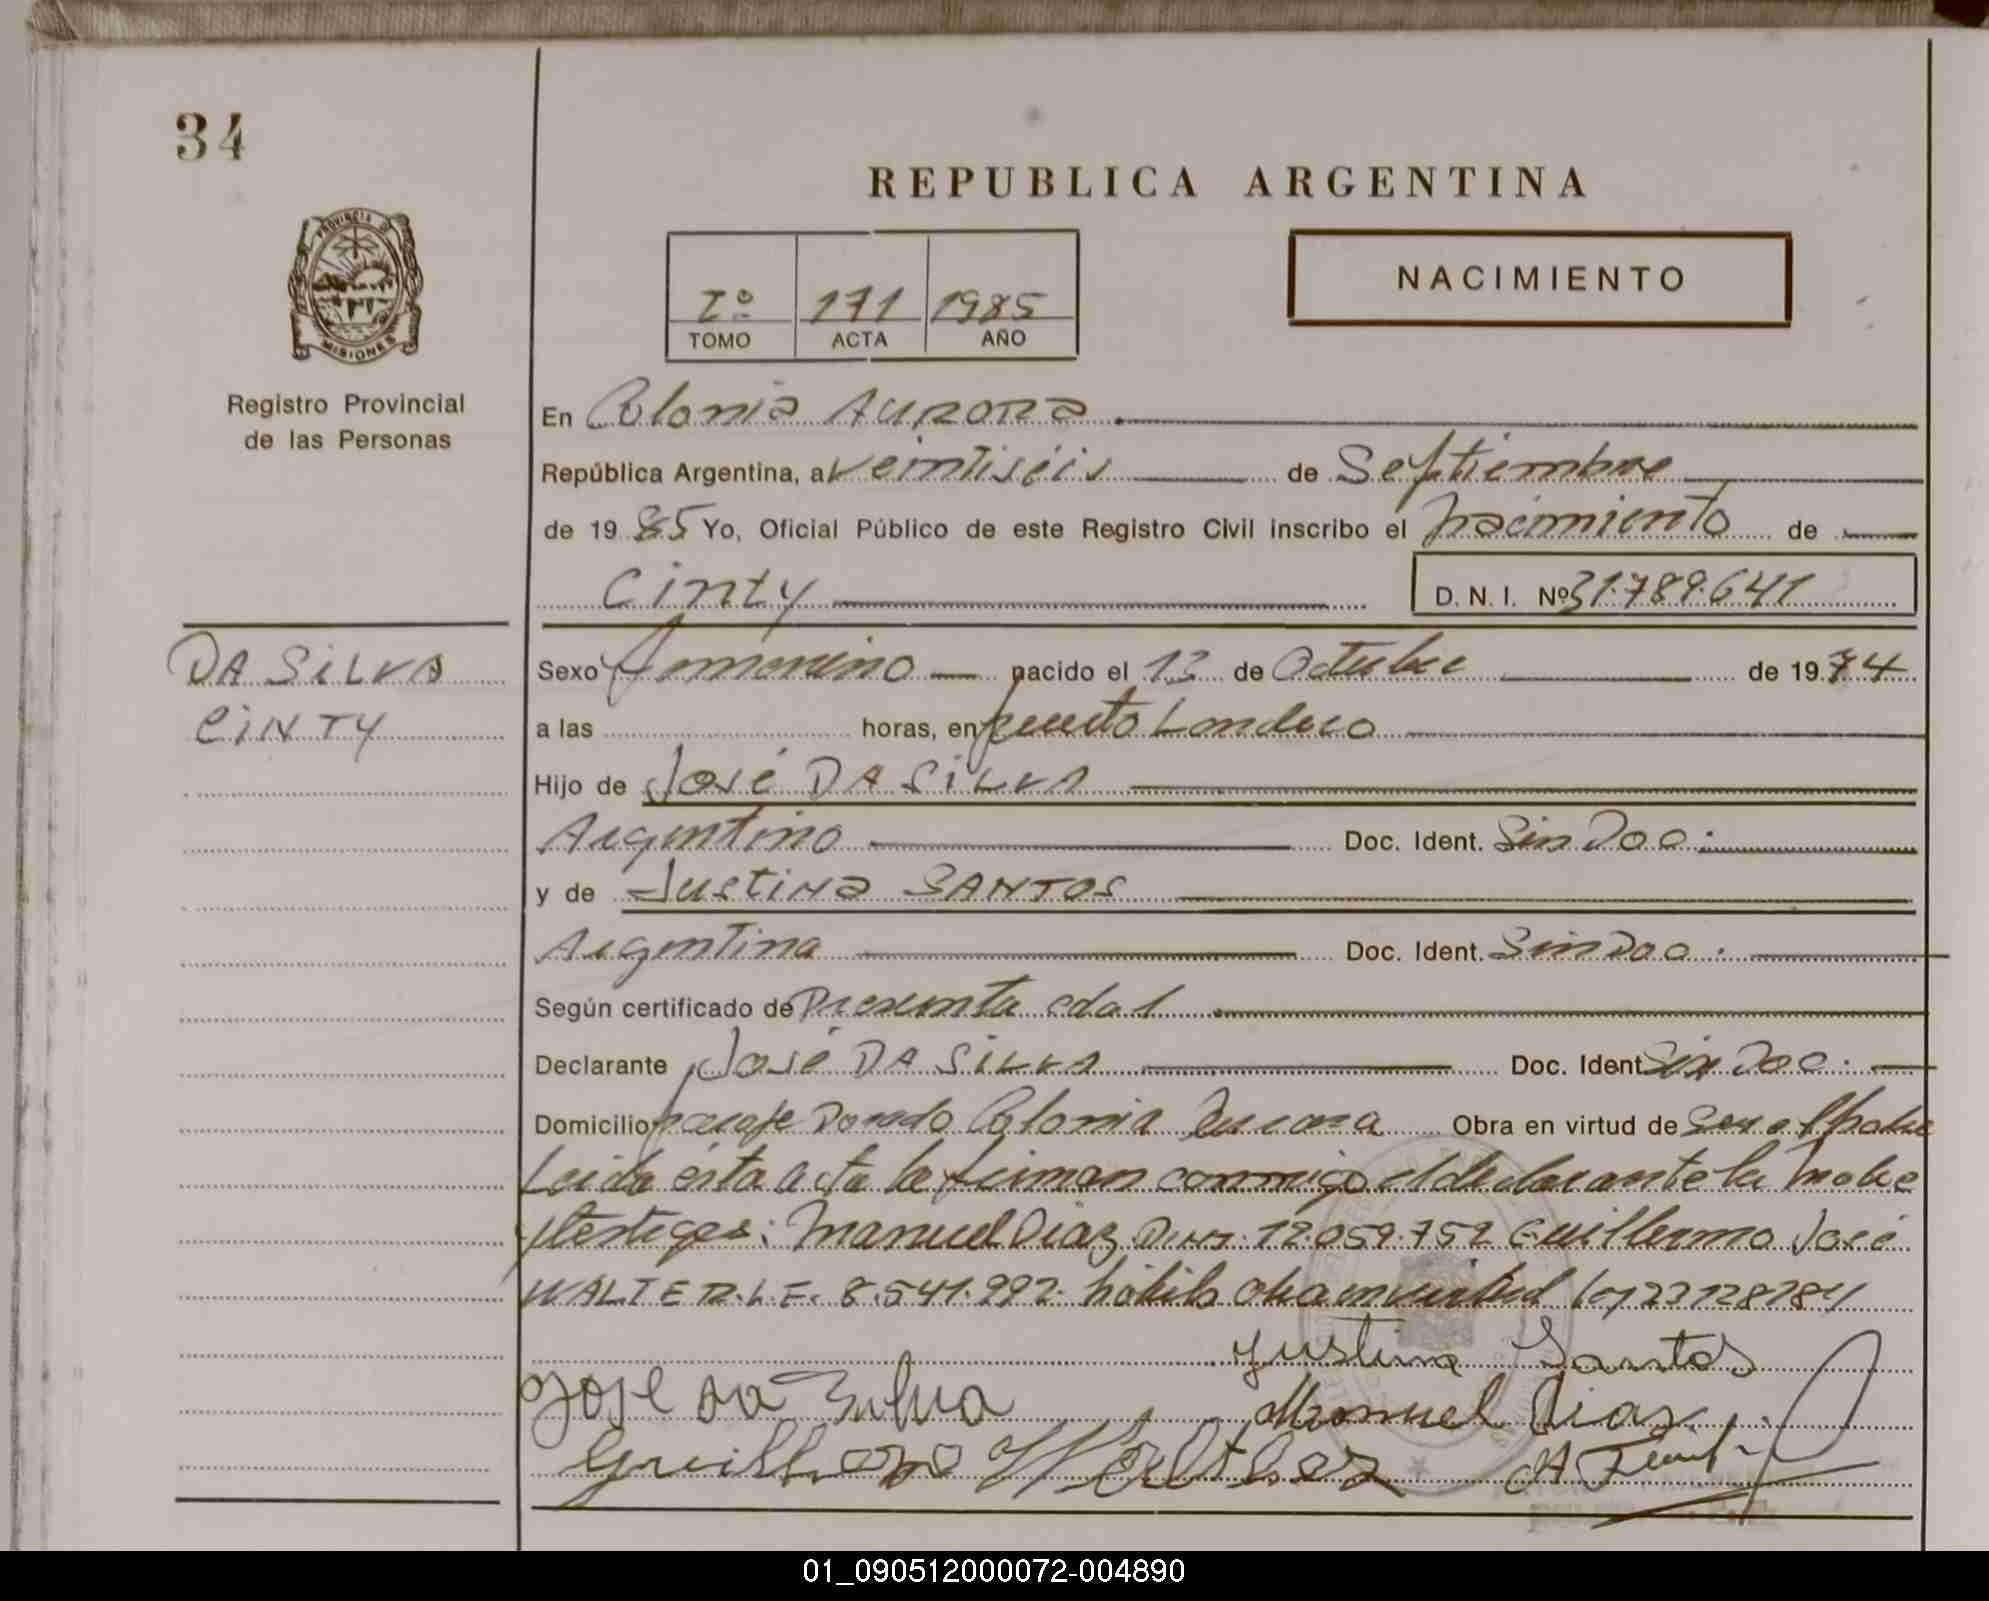 34
REPUBLICA ARGENTINA
PROVINCIA DE
MISIONES
Iº 171 1985
TOMO ACTA AÑO
NACIMIENTO
Registro Provincial
de las Personas
En Colonia Aurora
República Argentina, a veintiséis de Septiembre
de 1985 Yo, Oficial Público de este Registro Civil inscribo el nacimiento de
Cinty D. N. I. Nº 31.789.641
DA SILVA
CINTY
Sexo femenino nacido el 13 de Octubre de 1974
a las horas, en puerto Londero
Hijo de José DA SILVA
Argentino Doc. Ident. Sin Doc.
y de Justina SANTOS
Argentina Doc. Ident. Sin Doc.
Según certificado de Presunta edad
Declarante José DA SILVA Doc. Ident Sin Doc.
Domicilio paraje Dorado Colonia Aurora Obra en virtud de ser el padre
Leida ésta acta la firman conmigo el declarante la madre
y testigos: Manuel Diaz DNI. 12.059.752 Guillermo José
WALTER. L.E. 8.541.992. obra en virtud ley 23128/84
Justina Santos
JOSE da Silva Manuel Diaz
Guillermo Walter
01_090512000072-004890